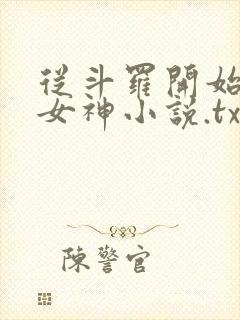 從斗羅開始
女神小說.tx
陳警官